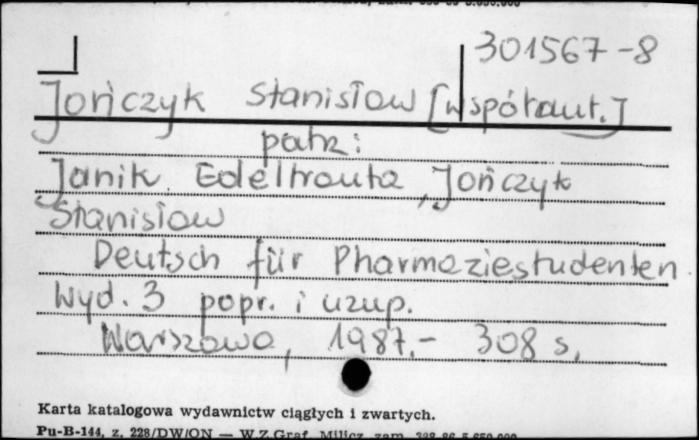 301567-8
Jończyk Stanisław [współaut.]
patrz:
Janik Edeltrauta, Jończyk
Stanisław
Deutsch für Pharmaziestudenten.
Wyd. 3 popr. i uzup.
Warszawa, 1987.- 308 s.
Karta katalogowa wydawnictw ciągłych i zwartych.
Pu-B-144, z. 228/DW/ON — W.Z.Graf. Milicz, zam.